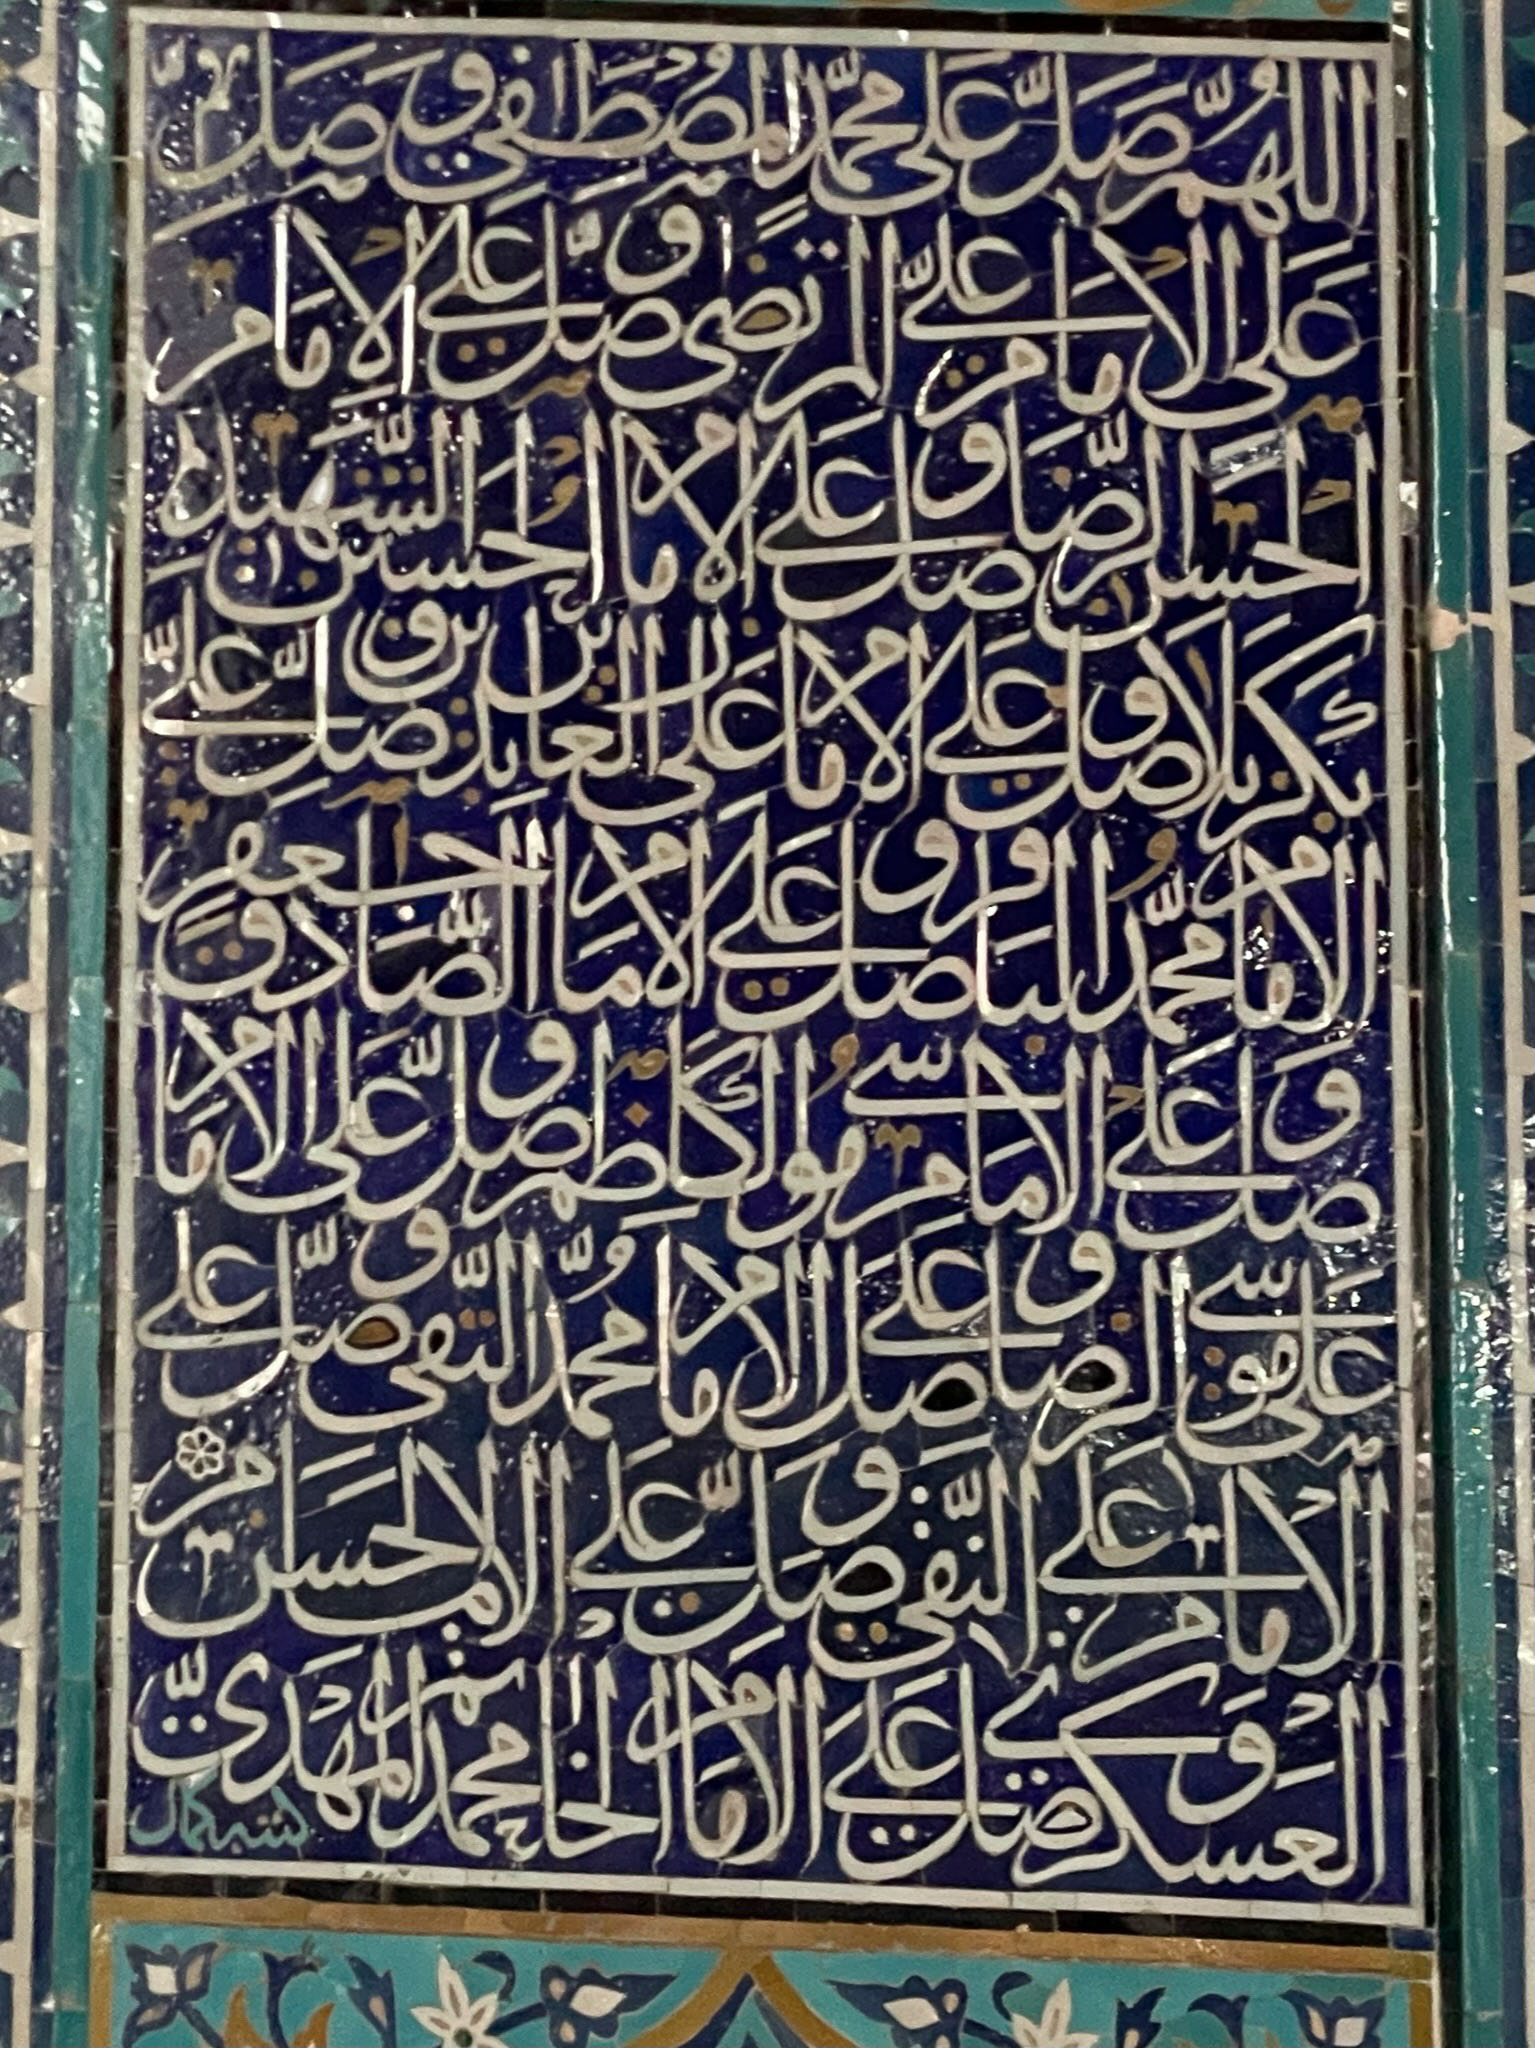 اللهم صل على محمد المصطفى و صل
على الامام علي المرتضى و صل على الامام
الحسن الرضا و صل على الامام الحسين الشهيد
بكربلا و صل على الامام على زين العابدين و صل على
الامام محمد الباقر و صل على الامام جعفر الصادق
و صل على الامام موسى الكاظم و صل على الامام
على موسى الرضا و صل على الامام محمد التقى و صل على
الامام على النقى و صل على الامام الحسن
العسكرى و صل على الامام الحجة محمد المهدى